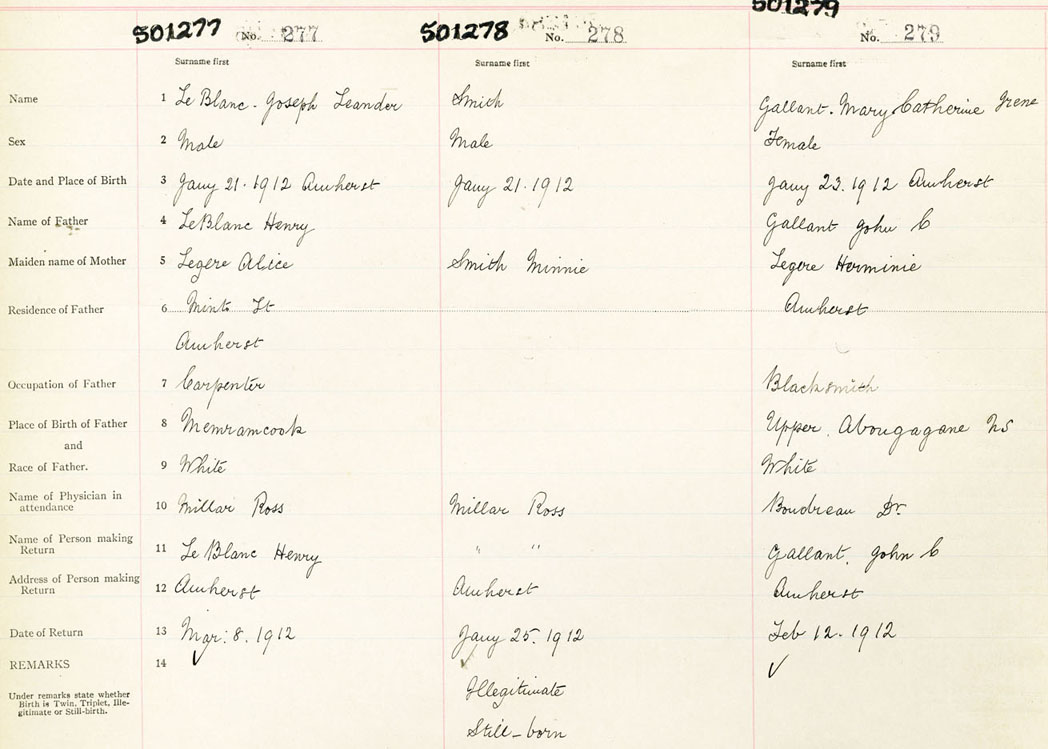 501277 No. 277 501278 No. 278 501279 No. 279
Surname first Surname first Surname first
Name 1 Le Blanc - Joseph Leander Smith Gallant. Mary Catherine Irene
Sex 2 Male Male Female
Date and Place of Birth 3 Jany 21. 1912 Amherst Jany 21. 1912 Jany 23. 1912 Amherst
Name of Father 4 LeBlanc Henry Gallant John C
Maiden name of Mother 5 Legere Alice Smith Minnie Legere Herminie
Residence of Father 6 Mint St Amherst
Amherst
Occupation of Father 7 Carpenter Blacksmith
Place of Birth of Father 8 Memramcook Upper Abougagane NS
and
Race of Father. 9 White White
Name of Physician in
attendance 10 Millar Ross Millar Ross Boudreau Dr.
Name of Person making
Return 11 Le Blanc Henry " " Gallant. John C
Address of Person making
Return 12 Amherst Amherst Amherst
Date of Return 13 Mar: 8. 1912 Jany 25. 1912 Feb 12. 1912
REMARKS 14 ✓ ✓ ✓
Under remarks state whether
Birth is Twin, Triplet, Ille-
gitimate or Still-birth.
Illegitimate
Still-born